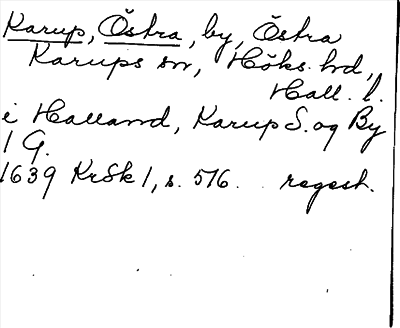 Karup, Östra, by, Östra
Karups sn, Höks hd,
Hall. l.
i Halland, Karup S. og By
1 G.
1639 KrSk 1, s. 576. regest.